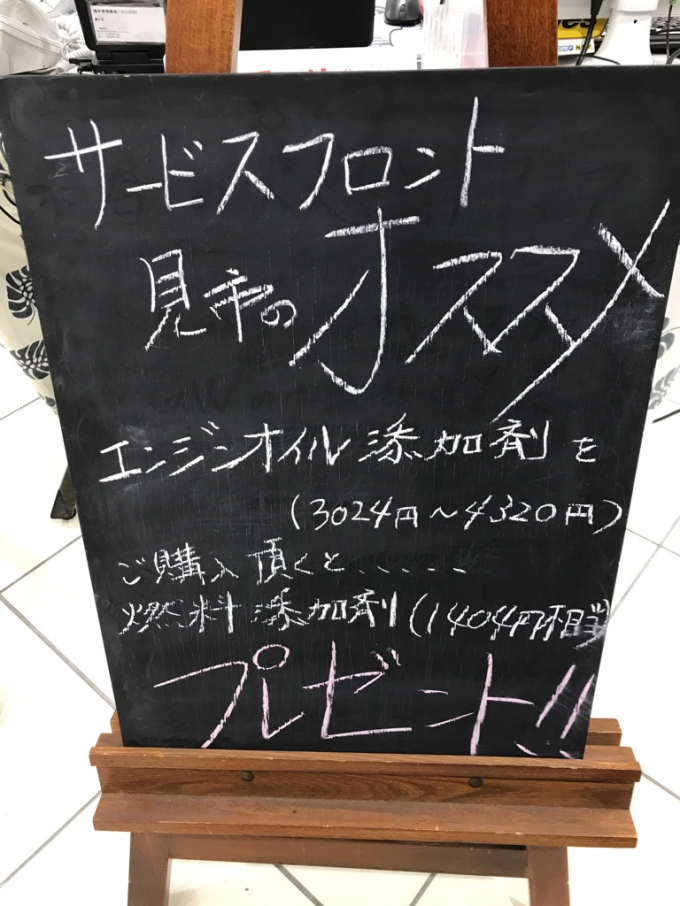 サービスフロント
見市のオススメ
エンジンオイル添加剤を
(3024円〜4320円)
ご購入頂くと、、、、、
燃料添加剤(1404円相当)
プレゼント!!